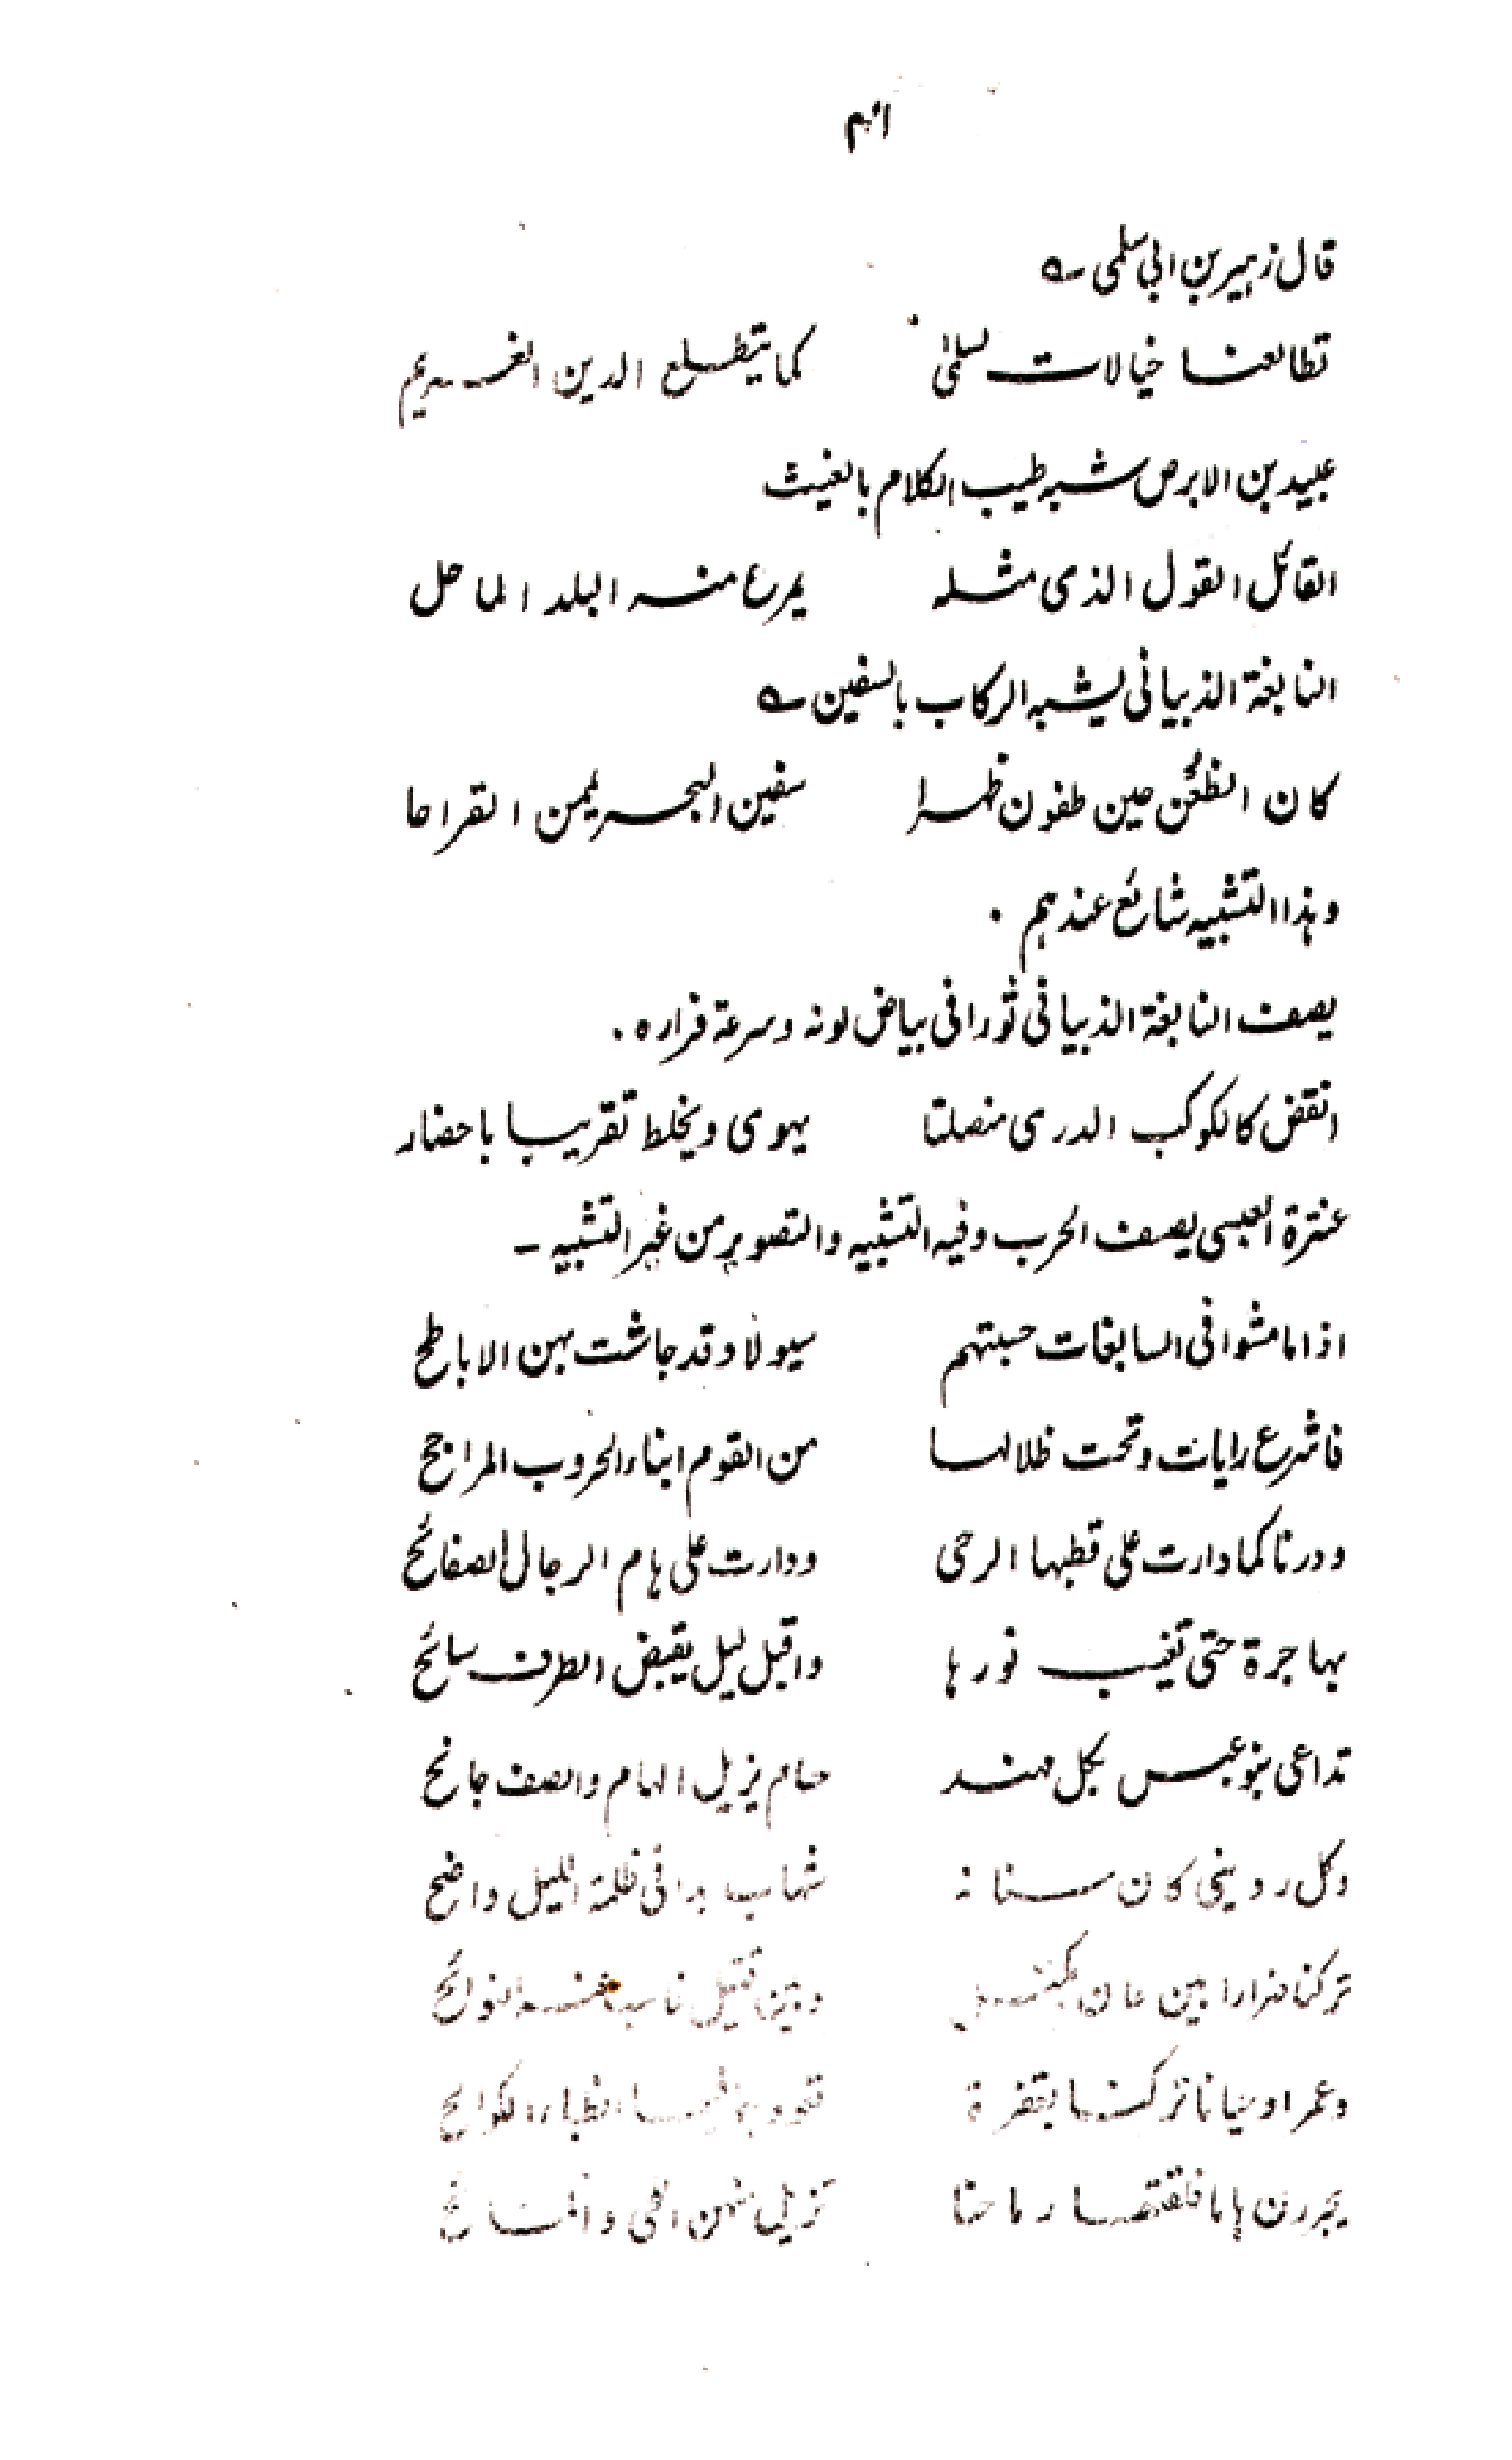 قال زہیر بن ابی سلمی ؎
تطالعنا خیالات لسلمیٰ کما یتطلع الدین الغریم
عبید بن الابرص شبہ طیب الکلام بالغیث
القائل القول الذی مثلہ یمرع منہ البلد الماحل
النابغۃ الذبیانی یشبہ الرکاب بالسفین ؎
کان الظُعُن حین طفون ظہرا سفین البحر یممن القراحا
وہذا التشبیہ شائع عندہم .
یصف النابغۃ الذبیانی ثورا فی بیاض لونہ وسرعۃ فرارہ .
انقض کالکوکب الدری منصلتا یہوی ویخلط تقریبا باحضار
عنترۃ العبسی یصف الحرب وفیہ التشبیہ والتصویر من غیر التشبیہ -
اذا ما مشوا فی السابغات حسبتہم سیولا وقد جاشت بہن الاباطح
فاشرع رایات وتحت ظلالہا من القوم ابناء الحروب المراجح
ودرنا کما دارت علی قطبہا الرحی ودارت علی ہام الرجال الصفائح
بہاجرۃ حتی تغیب نورہا واقبل لیل یقبض الطرف سائح
تداعی بنو عبس بکل مہند حسام یزیل الہام والصف جانح
وکل ردینی کان سنانہ شہاب بدا فی ظلمۃ اللیل واضح
ترکنا ضرارا بین عان مکبل وبین قتیل غاب عنہ النوائح
وعمرا وحیانا ترکنا بقفرۃ تعودہما فیہا الظباء الکوالح
یجررن ہاما فلقتہا رماحنا تزیل منہن اللحی والمسائح